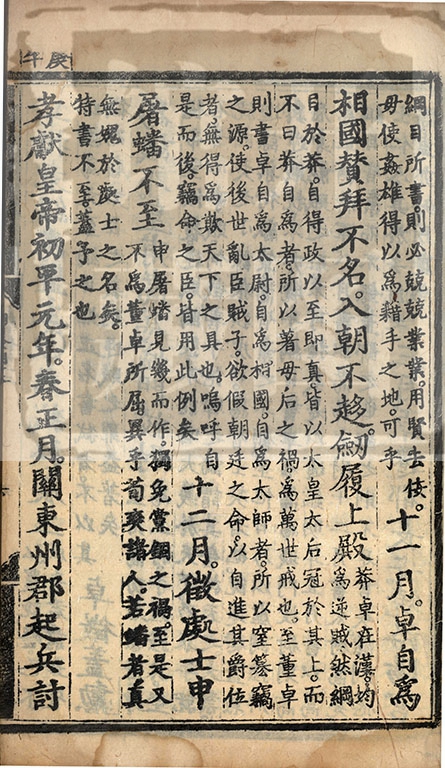 庚午
綱目所書。則必兢兢業業。用賢去佞。
毋使姦雄得以為藉手之地。可乎
十一月。卓自為
相國。贊拜不名。入朝不趨。劍履上殿
莽卓在漢。均
為逆賊。然綱
目於莽。自得政以至即真。皆以太皇太后冠於其上。而
不曰莽自為者。所以著母后之禍。為萬世戒也。至董卓
則書卓自為太尉。自為相國。自為太師者。所以窒篡竊
之源。使後世亂臣賊子。欲假朝廷之命。以自進其爵位
者。無得為欺天下之具也。嗚呼自
是而後。竊命之臣。皆用此例矣
十二月。徵處士申
屠蟠不至
申屠蟠見幾而作。獨免黨錮之禍。至是又
不為董卓所屈。異乎荀爽諸人。若蟠者真
無媿於處士之名矣。
特書不至。蓋予之也
孝獻皇帝初平元年。春正月。關東州郡起兵討